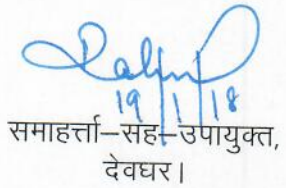 19/1/18
समाहर्त्ता–सह–उपायुक्त,
देवघर।